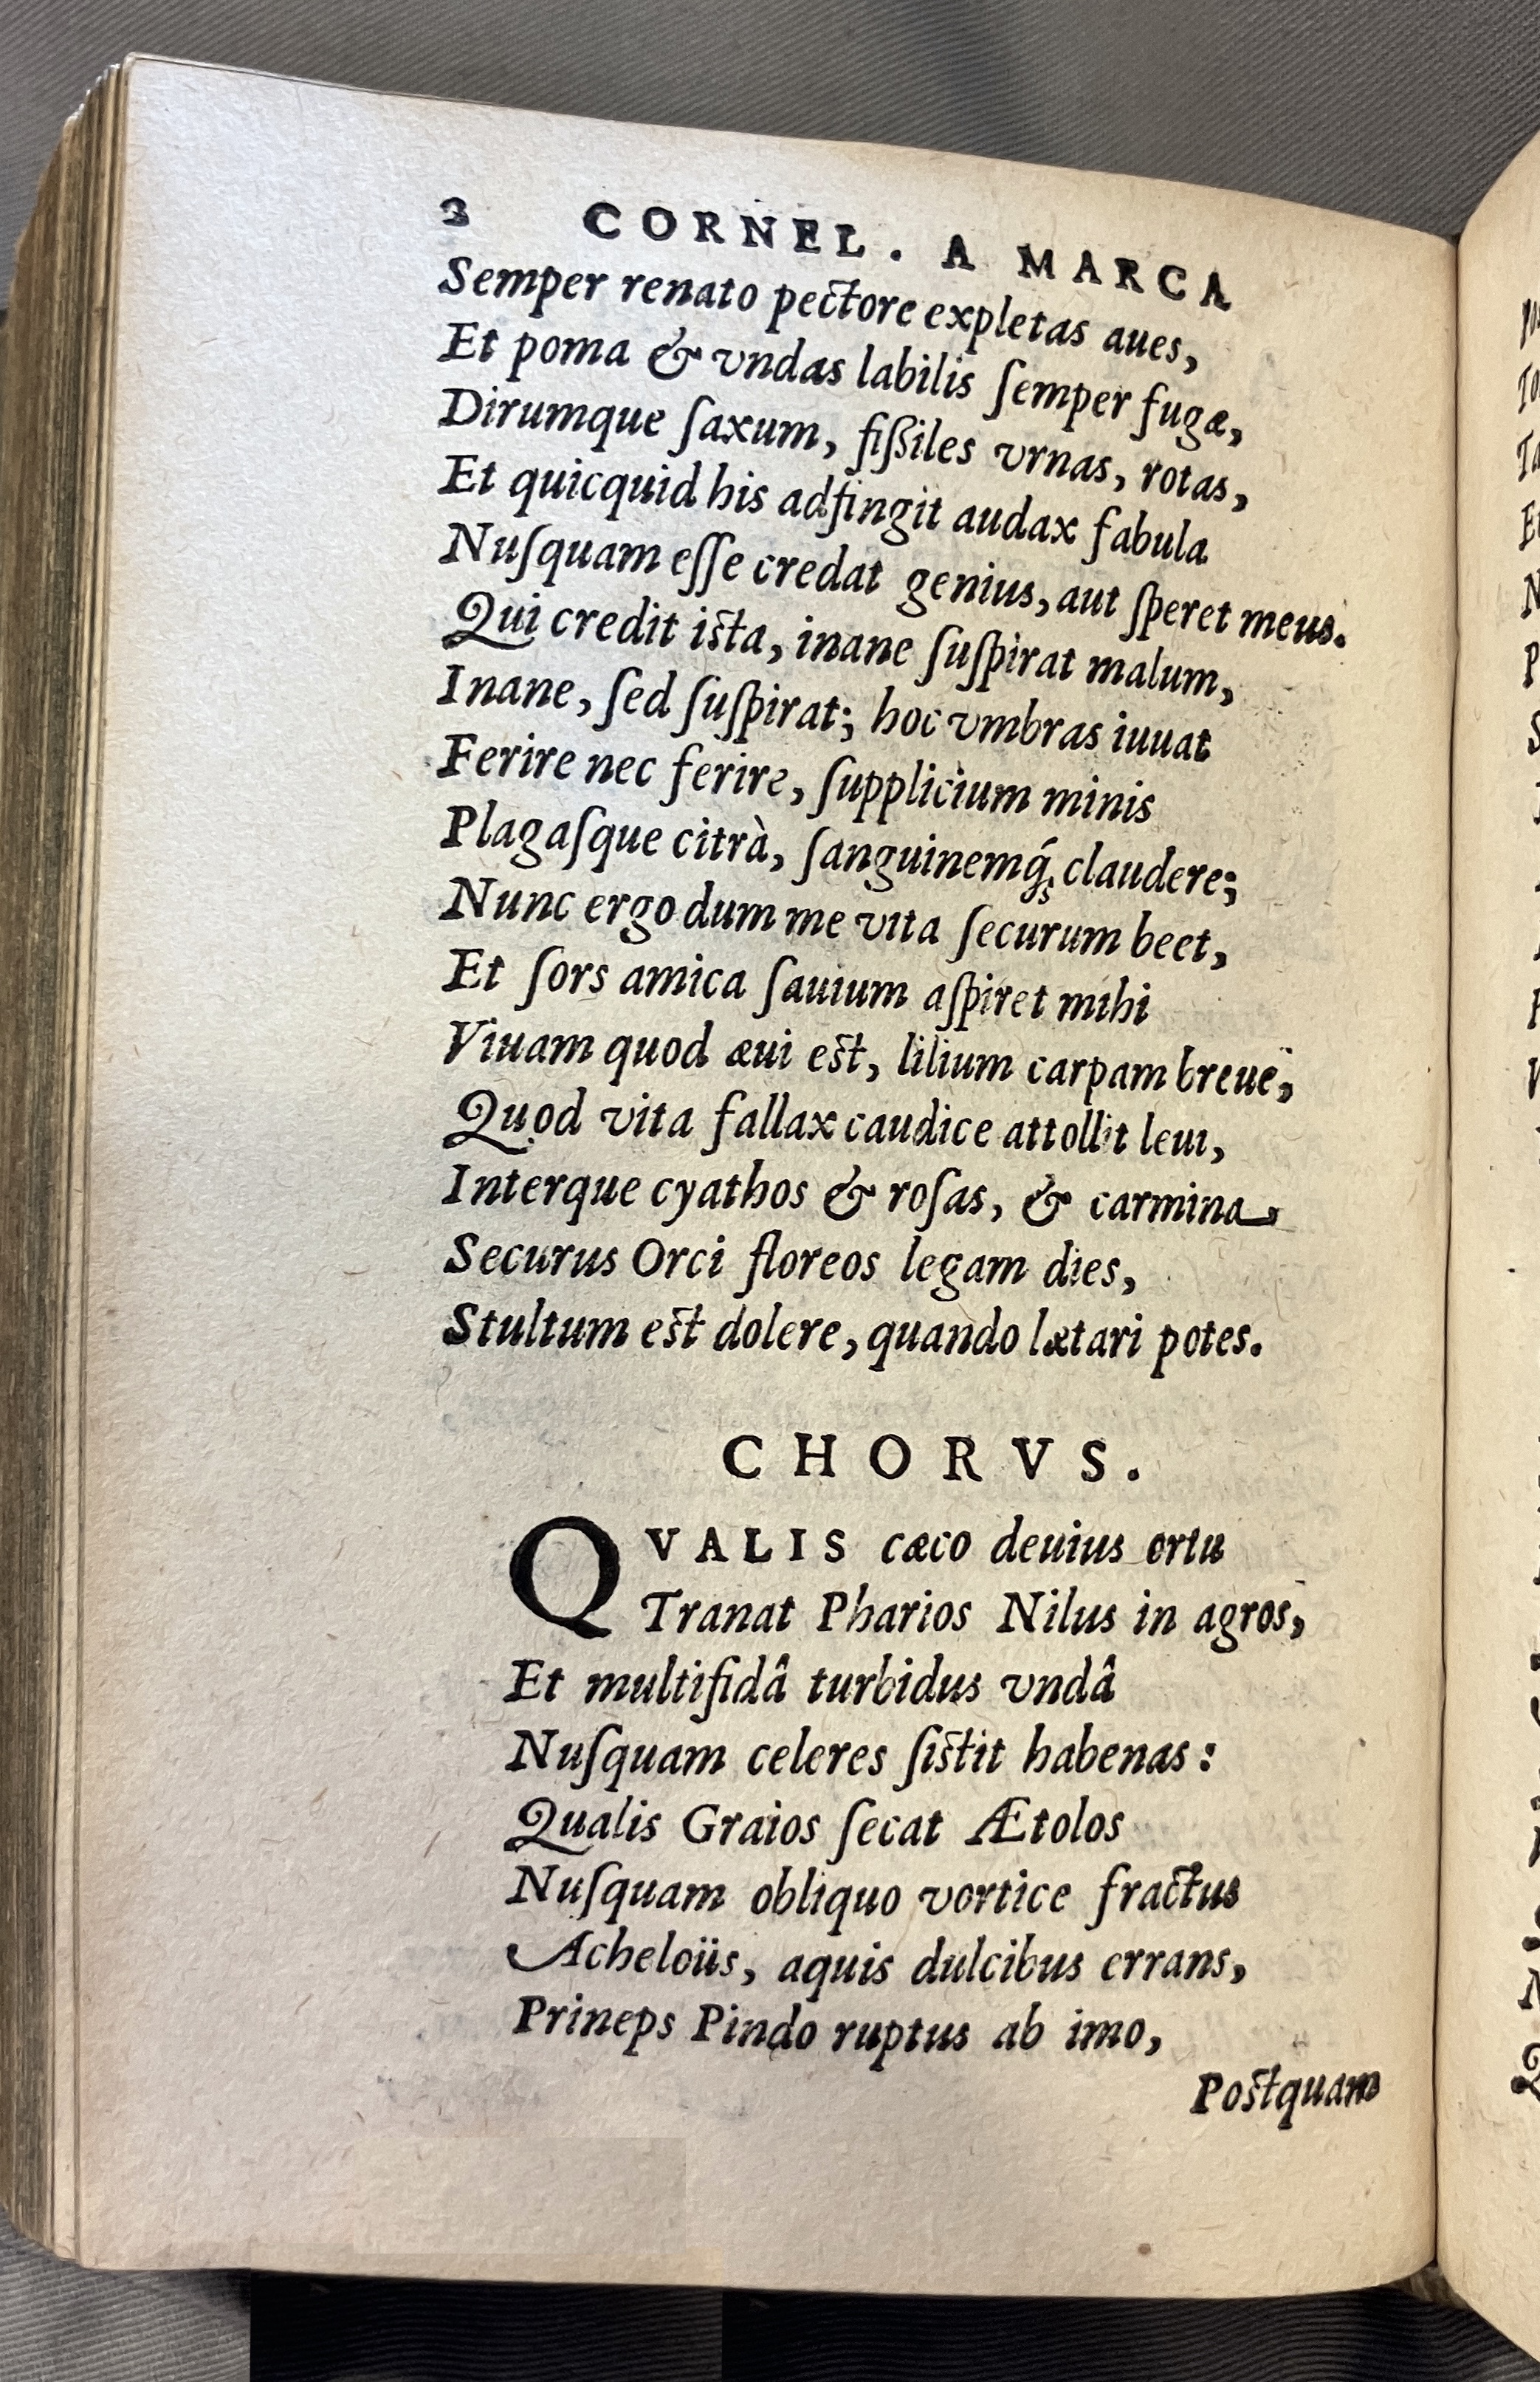 2 CORNEL. A MARCA
Semper renato pectore expletas aues,
Et poma & vndas labilis ſemper fugæ,
Dirumque ſaxum, fiſſiles vrnas, rotas,
Et quicquid his adfingit audax fabula
Nuſquam eſſe credat genius, aut ſperet meus.
Qui credit iſta, inane ſuſpirat malum,
Inane, ſed ſuſpirat; hoc vmbras iuuat
Ferire nec ferire, ſupplicium minis
Plagaſque citrà, ſanguinemq́; claudere;
Nunc ergo dum me vita ſecurum beet,
Et ſors amica ſauium aſpiret mihi
Viuam quod æui eſt, lilium carpam breue,
Quod vita fallax caudice attollit leui,
Interque cyathos & roſas, & carmina
Securus Orci floreos legam dies,
Stultum eſt dolere, quando lætari potes.
CHORVS.
QVALIS cæco deuius ortu
Tranat Pharios Nilus in agros,
Et multifidâ turbidus vndâ
Nuſquam celeres ſiſtit habenas:
Qualis Graios ſecat Ætolos
Nuſquam obliquo vortice fractus
Acheloüs, aquis dulcibus errans,
Prineps Pindo ruptus ab imo,
Poſtquam